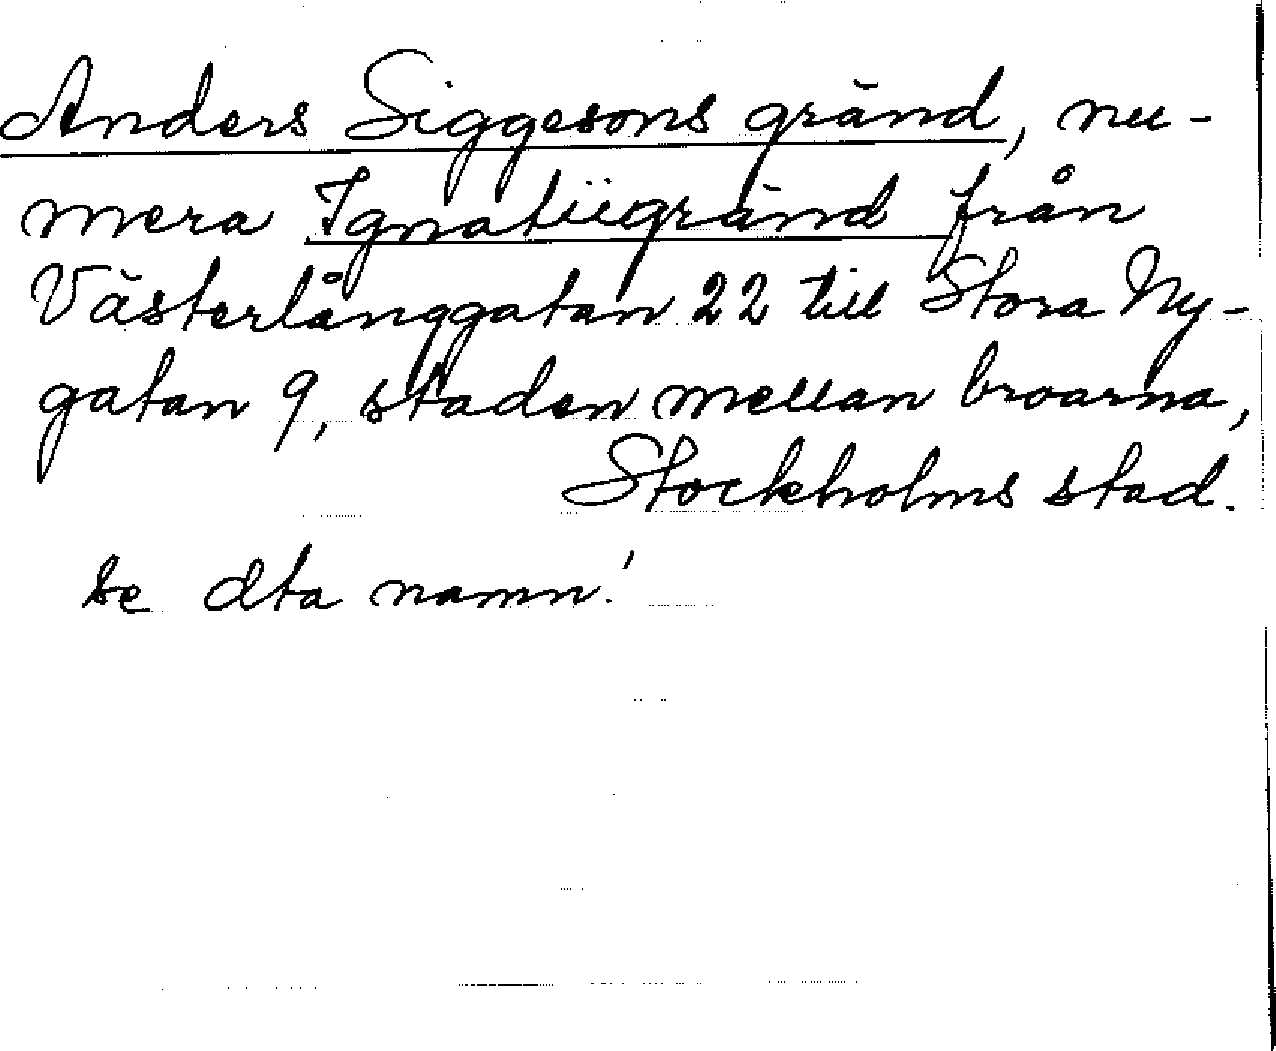 Anders Siggesons gränd, nu-
mera Ignatiigränd från
Västerlånggatan 22 till Stora Ny-
gatan 9, staden mellan broarna,
Stockholms stad.
se dta namn!